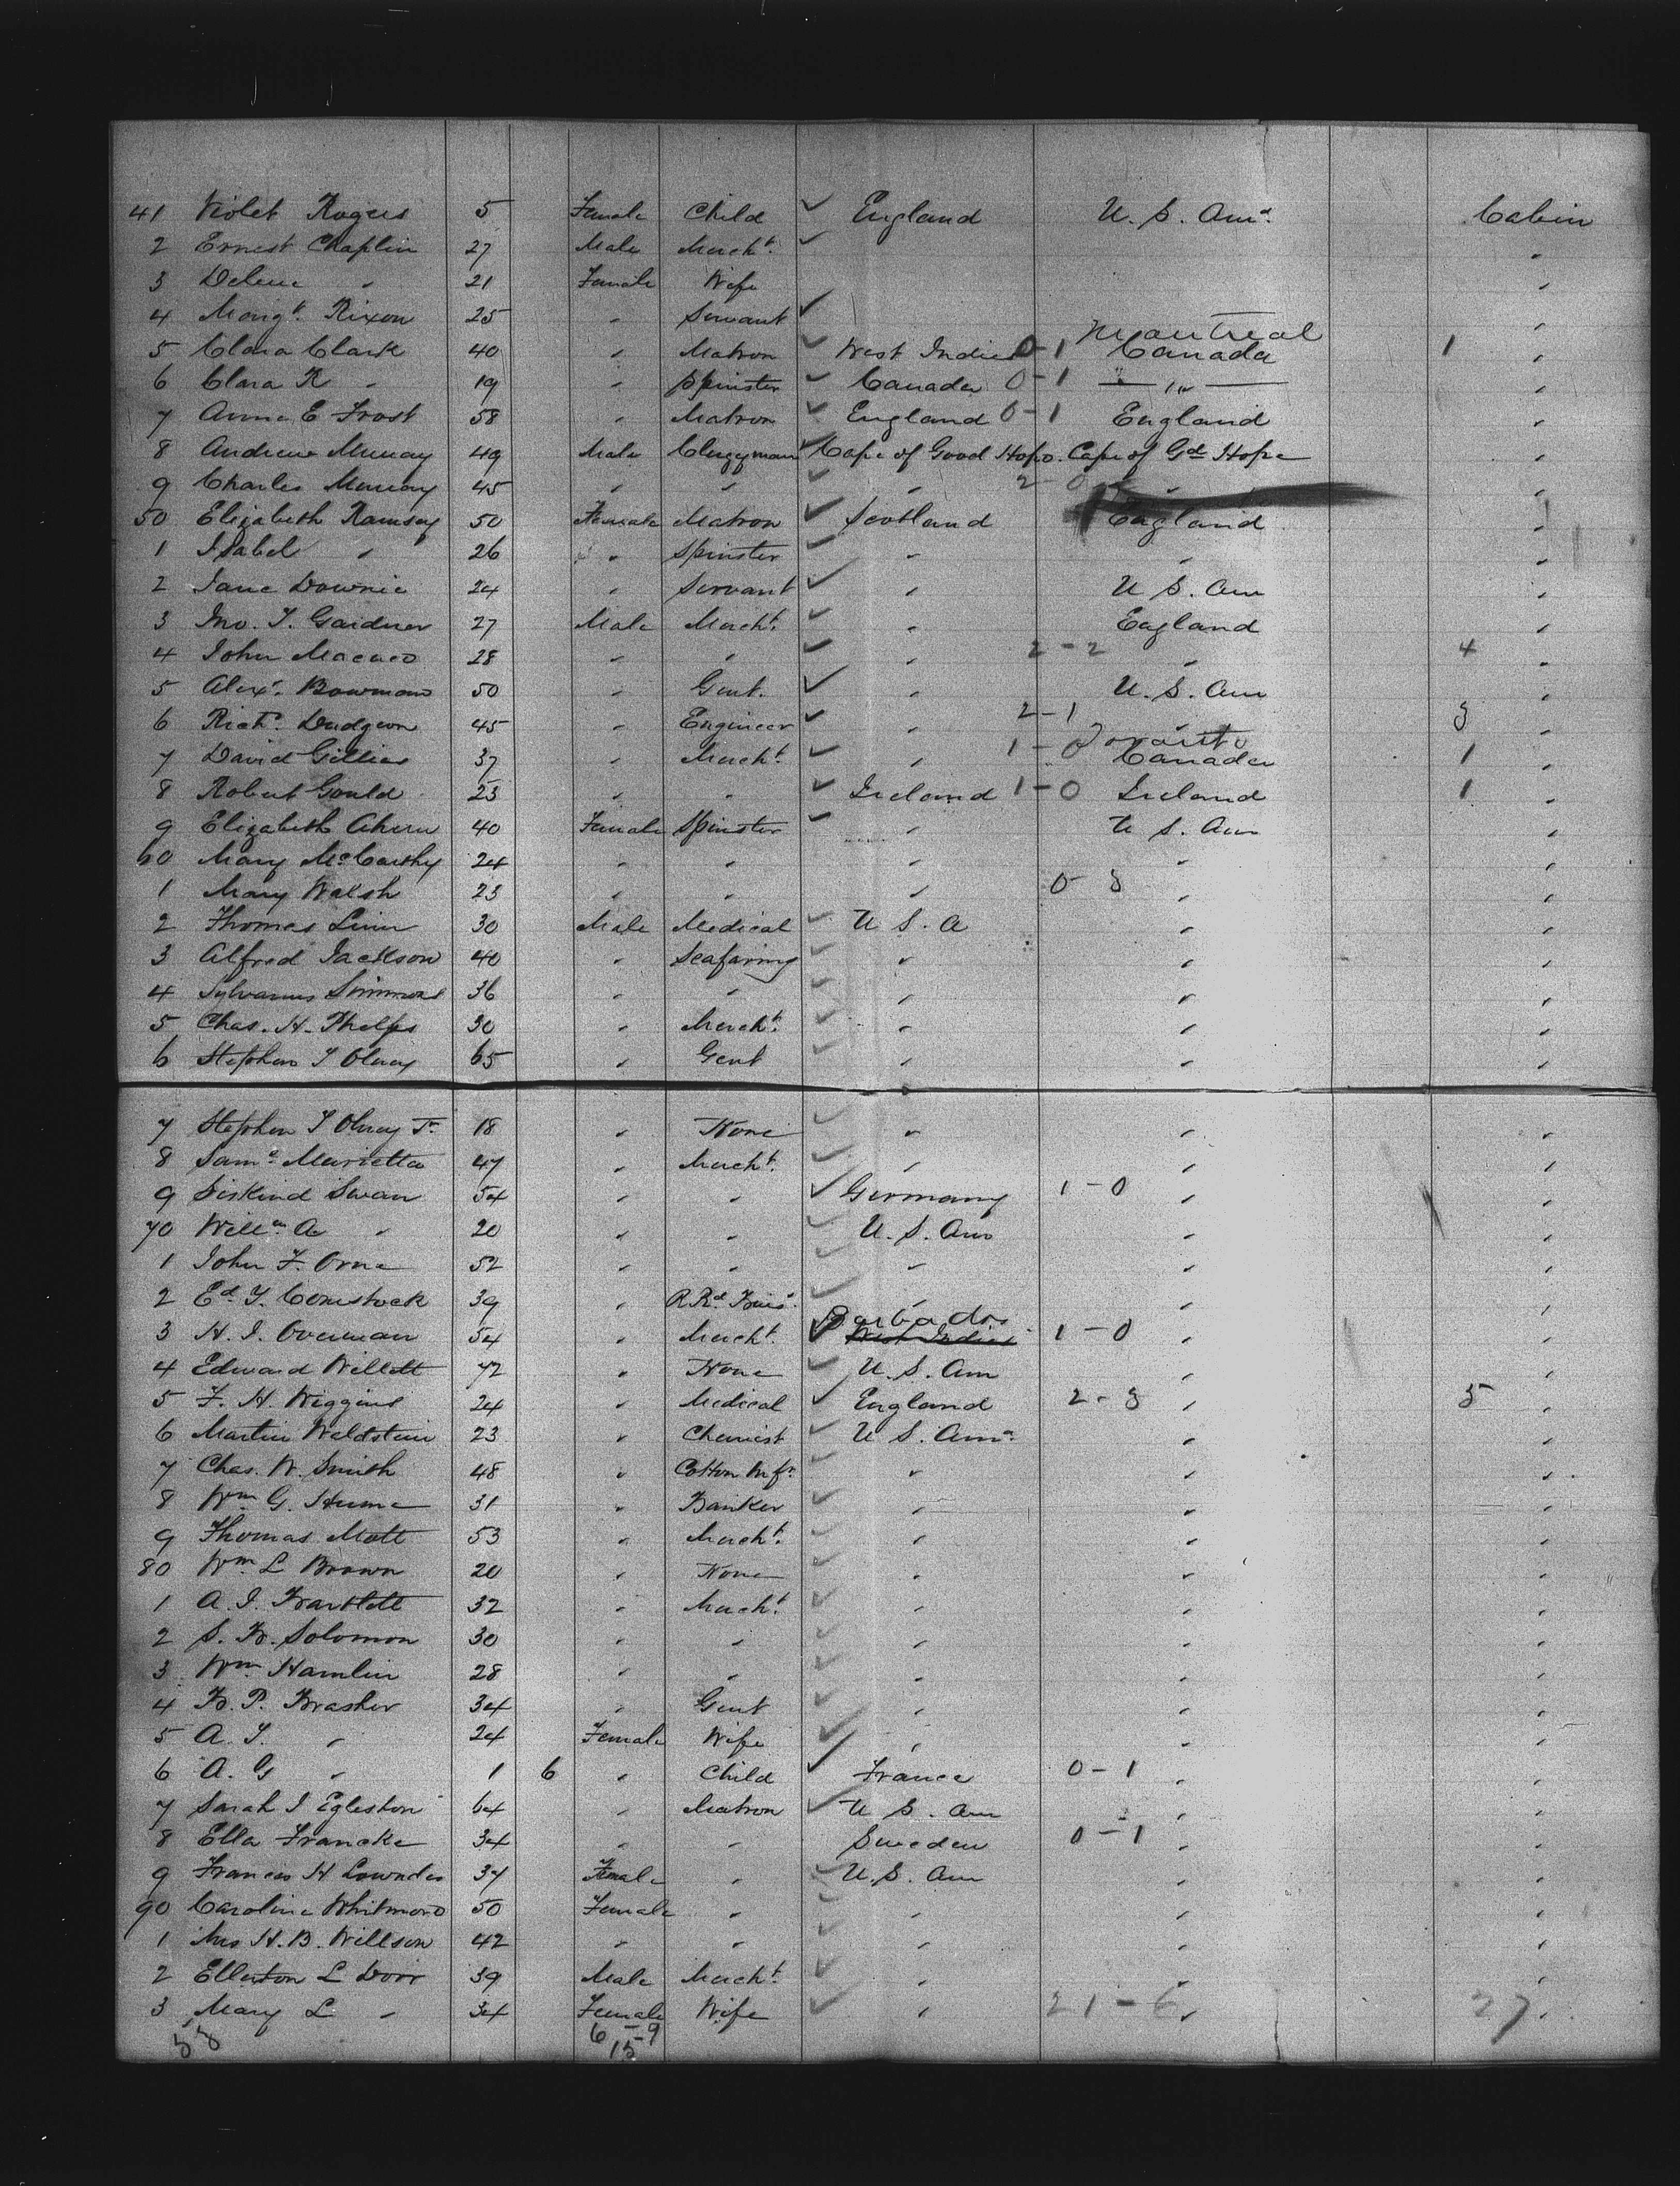 41 Violet Rogers 5 Female Child ✓ England U. S. Amª. Cabin
2 Ernest Chaplin 27 Male Mercht. ✓ "
3 " 21 Female Wife "
4 Margt. Rixon 25 " Servant ✓ "
Montreal
5 Clara Clark 40 " Matron ✓ West Indies 0-1 Canada 1 "
6 Clara R " 19 " Spinster ✓ Canada 0-1 " "
7 Anna E Frost 58 " Matron ✓ England 0-1 England "
8 Andrew Murray 49 Male Clergyman ✓ Cape of Good Hope. Cape of Gd. Hope "
9 Charles Murray 45 " " ✓ " 2-0 " "
50 Elizabeth Ramsay 50 Female Matron ✓ Scotland England "
1 Isabel " 26 " Spinster ✓ " " "
2 Jane Downie 24 " Servant ✓ " U S. Am "
3 Jno. T. Gardner 27 Male Mercht. ✓ " England "
4 John 28 " " ✓ " 2-2 " 4 "
5 Alexr. Bowman 50 " Gent. ✓ " U. S. Am "
6 Richd. Dudgeon 45 " Engineer ✓ " 2-1 " 3 "
Toronto
7 David Gillies 37 " Mercht. ✓ " 1-0 Canada 1 "
8 Robert Gould 23 " " ✓ Ireland 1-0 Ireland 1 "
9 Elizabeth Ahern 40 Female Spinster ✓ " U S. Am "
60 Mary McCarthy 24 " " " " "
1 Mary Walsh 23 " " " 0-3 " "
2 Thomas Linn 30 Male Medical ✓ U S. A " "
3 Alfred Jackson 40 " Seafaring ✓ " " "
4 Sylvanus Simmons 36 " " ✓ " " "
5 Chas. H. Phelps 30 " Mercht. ✓ " " "
6 Stephen T Olney 65 " Gent ✓ " " "
7 Stephen T Olney Jr. 18 " None ✓ " " "
8 Saml. Marietta 47 " Mercht. ✓ " " "
9 Siskind Swan 54 " " ✓ Germany 1-0 " "
70 Willm. A " 20 " " ✓ U. S. Am " "
1 John F. Orne 52 " " ✓ " " "
2 Ed. Y. Comstock 39 " R.Rd. Busi. ✓ " " "
Barbados
3 H. I. Overman 54 " Mercht. ✓ West Indies 1-0 " "
4 Edward Willett 72 " None ✓ U. S. Am " "
5 F. H. Wiggins 24 " Medical ✓ England 2-3 " 5 "
6 Martin Waldstein 23 " Chemist ✓ U S. Amª. " "
7 Chas. W. Smith 48 " Cotton Mfr. ✓ " " "
8 Wm G. Hume 31 " Banker ✓ " " "
9 Thomas Mott 53 " Mercht. ✓ " " "
80 Wm. L Brown 20 " None ✓ " " "
1 A. I. Bartlett 32 " Mercht. ✓ " " "
2 S. B. Solomon 30 " " ✓ " " "
3 Wm Hamlin 28 " " ✓ " " "
4 B. P. Brasher 34 " Gent ✓ " " "
5 A. T. " 24 Female Wife ✓ " " "
6 A. G " 1 6 " Child ✓ France 0-1 " "
7 Sarah I Egleston 64 " Matron ✓ U S. Am " "
8 Ella Francke 34 " " Sweden 0-1 " "
9 Frances H Lowndes 37 Female " ✓ U. S. Am " "
90 Caroline Whitmore 50 Female " ✓ " " "
1 Mrs H. B. Willson 42 " " ✓ " " "
2 Ellerton L Dorr 39 Male Mercht. ✓ " " "
3 Mary L " 34 Female Wife ✓ " 21-6 " 27 "
53 6-9
15